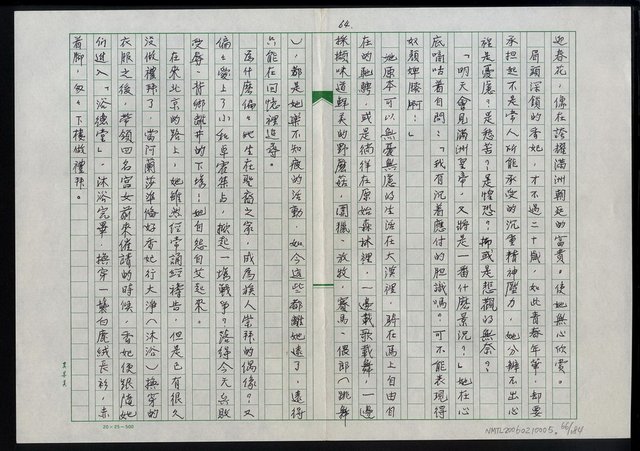 64.
迎春花，像在誇耀滿洲朝廷的富貴。使她無心欣賞。
眉頭深鎖的香妃，才不過二十歲，如此青春年華，卻要
承担起不是常人所能承受的沉重精神壓力，她分辨不出心
裡是憂慮？是愁苦？是惶恐？抑或是悲觀的無奈？
「明天會見滿洲皇帝，又將是一番什麼景況？」她在心
底嘀咕着自問：「我有沉着應付的胆識嗎？可不能表現得
奴顏婢膝啊！」
她原本可以無憂無慮的生活在大漠裡，騎在馬上自由自
在的馳騁，或是徜徉在原始森林裡，一邊載歌載舞，一邊
採擷味道鮮美的野蘑菇，圍獵、放牧，賽馬、偎郎（跳舞
），都是她樂不知疲的活動，如今這些都離她遠了，遠得
只能在回憶裡追尋。
為什麼偏偏她生在聖裔之家，成為族人崇拜的偶像？又
偏偏愛上了小和卓霍集占，掀起一場戰爭？落得今天兵敗
受辱，背鄉離井的下場！她自怨自艾起來。
在來北京的路上，她雖然經常誦經禱告，但是已有很久
沒做禮拜了，當阿蘭莎準備好香妃行大淨（沐浴）換穿的
衣服之後，帶領四名宮女前來催請的時候，香妃便跟隨她
們進入「浴德堂」，沐浴完畢，換穿一襲白鹿絨長衫，赤
着腳，匆匆下樓做禮拜。
20×25=500
NMTL20050210005.
66/184